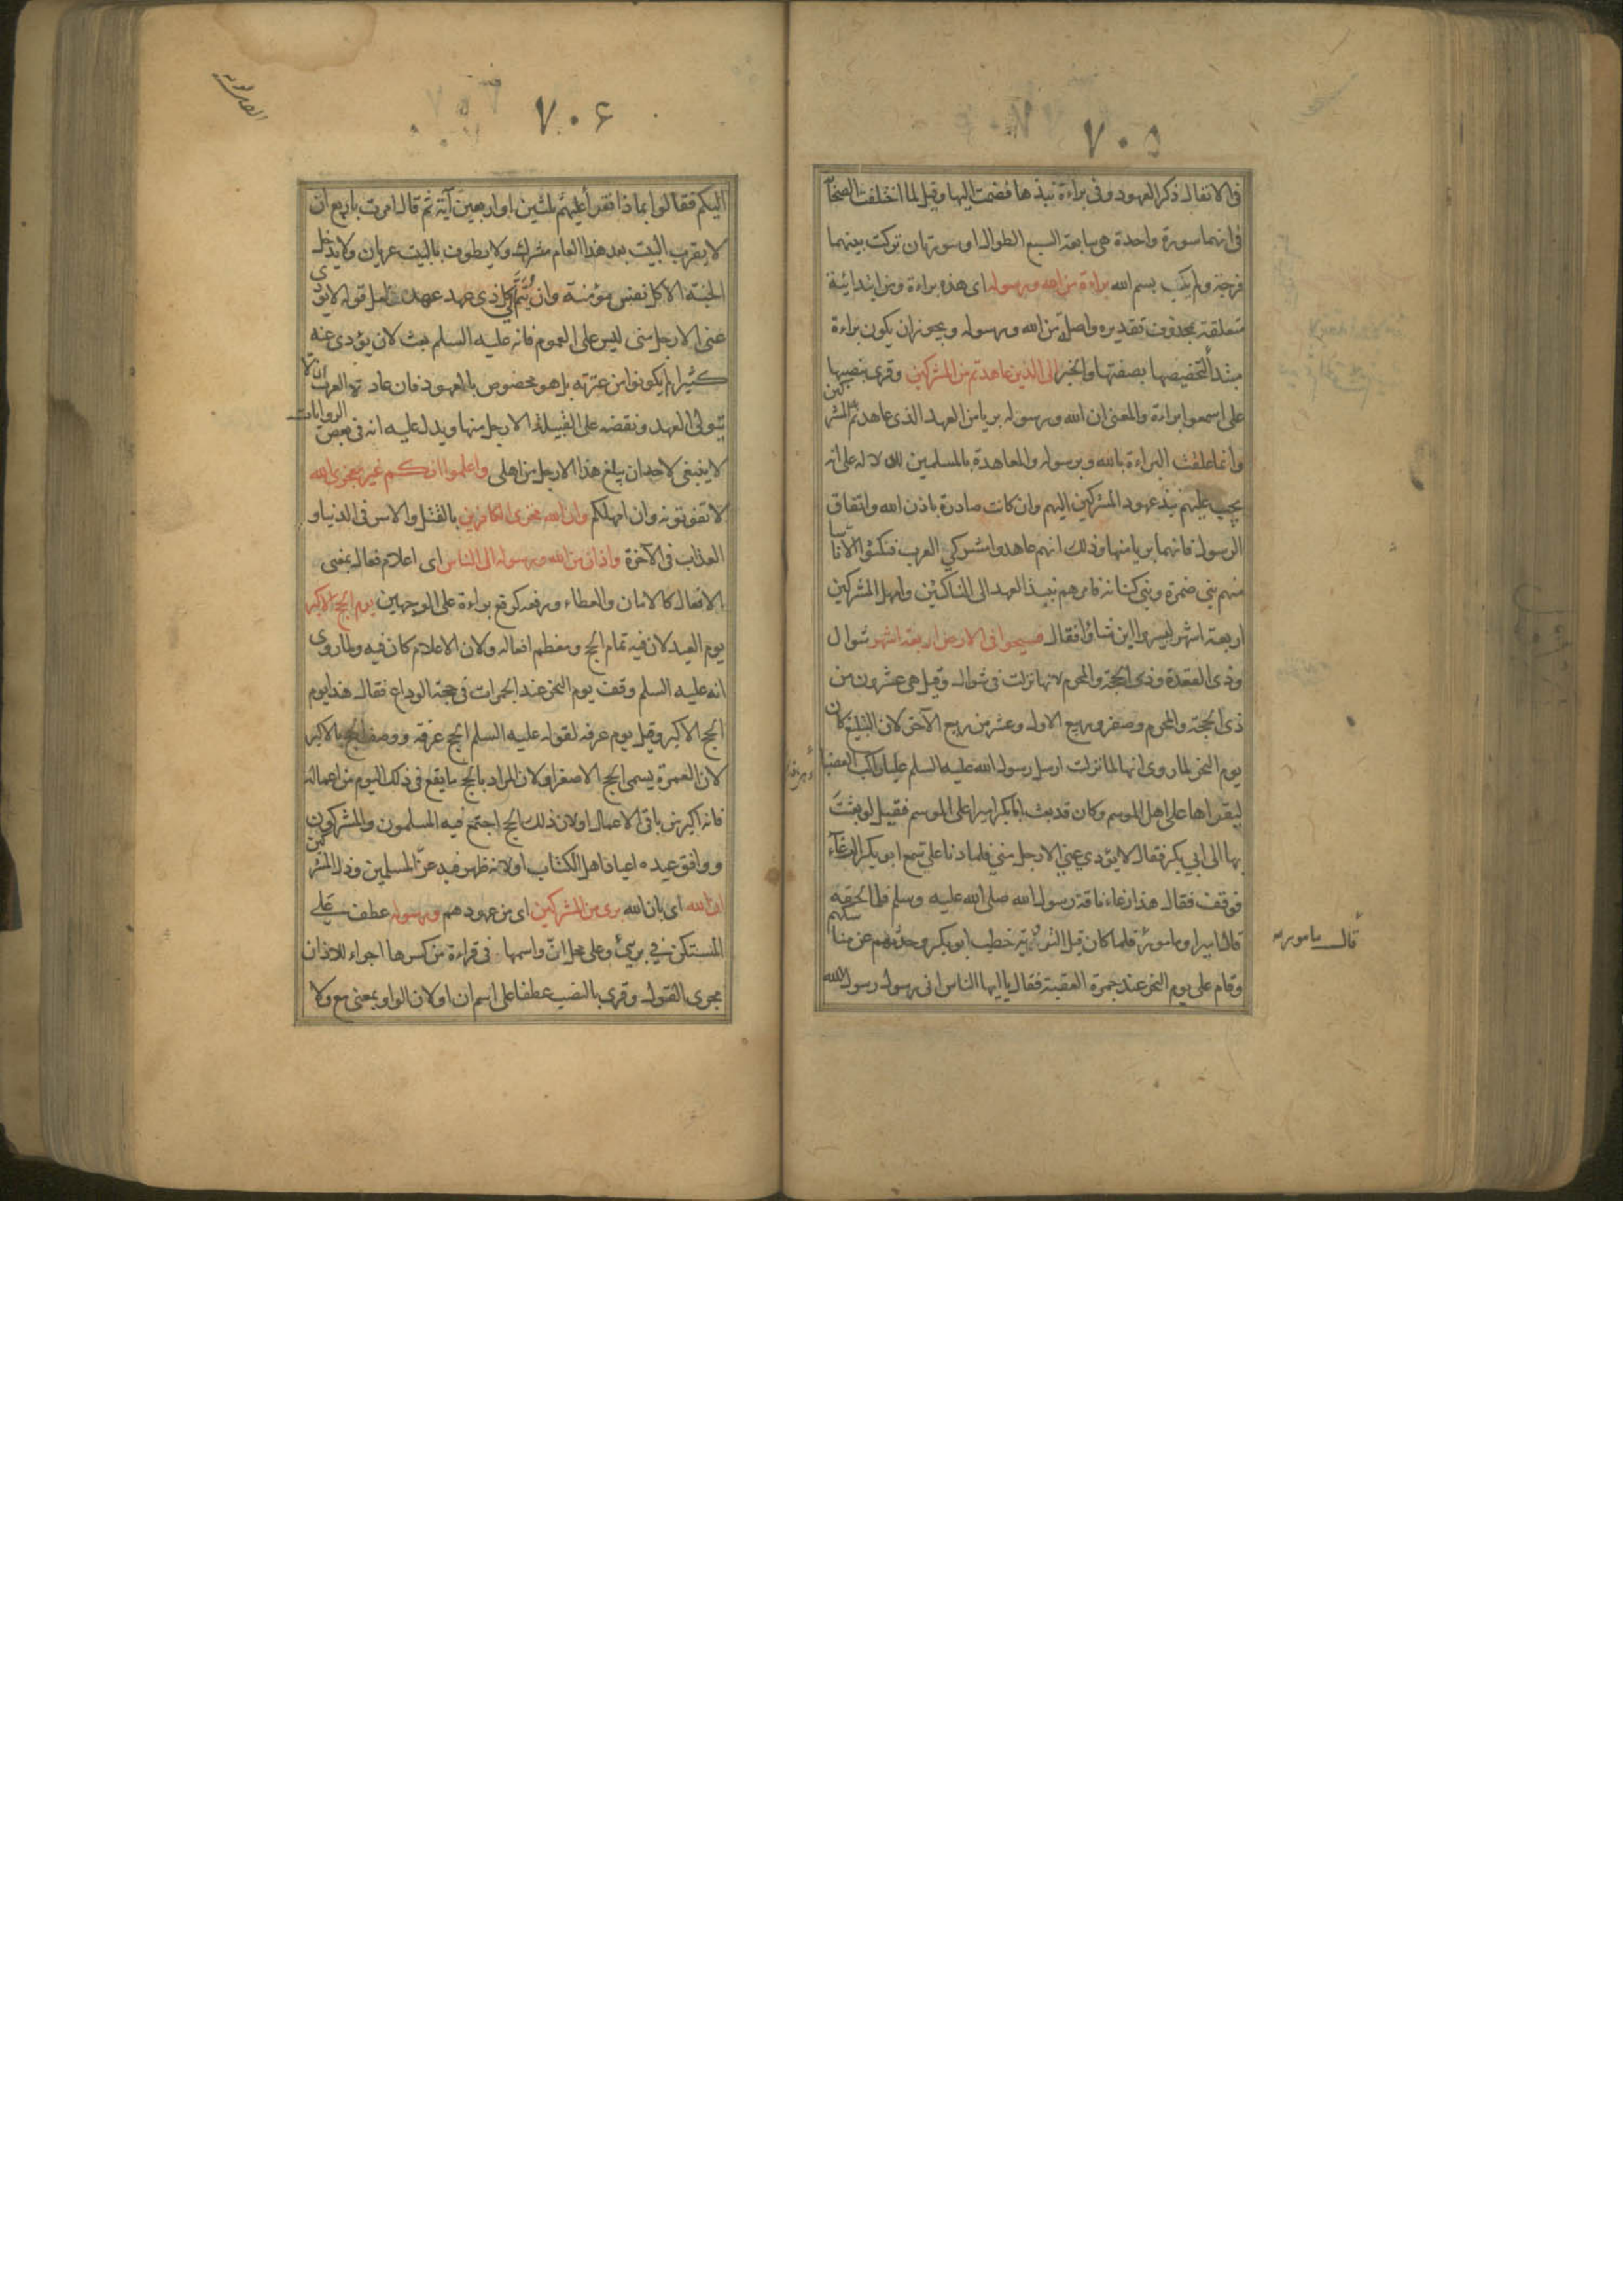 ٧٠٥
فى الانفال ذكر العهود وفى براءة نبذها فضمت اليها وقيل لما اختلفت الصحابة
فى انهما سورة واحدة هى سابعة السبع الطوال او سورتان تركت بينهما
فرجة ولم يكتب بسم الله براءة من الله ورسوله اى هذه براءة ومن ابتدائية
متعلقة بمحذوف تقديره واصلة من الله ورسوله ويجوز ان يكون براءة
مبتدأ لتخصيصها بصفتها والخبر الى الذين عاهدتم من المشركين وقرى بنصبها
على اسمعوا براءة والمعنى ان الله ورسوله بريا من العهد الذى عاهدتم به المشركين
وانما علقت البراءة بالله وبرسوله والمعاهدة بالمسلمين للدلالة على انه
يجب عليهم نبذ عهود المشركين اليهم وان كانت صادرة باذن الله واتفاق
الرسول فانهما بريا منها وذلك انهم عاهدوا مشركي العرب فنكثوا الا اناسا
منهم بني ضمرة وبني كنانة فامرهم بنبذ العهد الى الناكثين وامهل المشركين
اربعة اشهر ليسيروا اين شاؤا فقال فسيحوا فى الارض اربعة اشهر شوال
وذى القعدة وذى الحجة والمحرم لانها نزلت فى شوال وقيل هى عشرون من
ذى الحجة والمحرم وصفر وربيع الاول وعشر من ربيع الآخر لان التبليغ كان
يوم النحر لما روى انها لما نزلت ارسل رسول الله عليه السلم عليا راكب العضبا
ليقراها على اهل الموسم وكان قد بعث ابابكر اميرا على الموسم فقيل لو بعثت
بها الى ابي بكر فقال لا يؤدي عني الا رجل مني فلما دنا علي سمع ابو بكر الرغآء
فوقف فقال هذا رغاء ناقة رسول الله صلى الله عليه وسلم فلما لحقه
قال امير او مامور فلما كان قبل التروية خطب ابو بكر وحدثهم عن مناسكهم
قال مامور
وقام على يوم النحر عند جمرة العقبة فقال يا ايها الناس انى رسول رسول الله
٧٠٦
اليكم فقالوا بماذا فقرأ عليهم ثلثين او اربعين آية ثم قال امرت باربع ان
لا يقرب البيت بعد هذا العام مشرك ولا يطوف بالبيت عريان ولا يدخل
الجنة الا كل نفس مؤمنة وان يتم الى كل ذى عهد عهده ولعل قوله لا يؤدى
عنى الا رجل منى ليس على العموم فانه عليه السلم بعث لان يؤدى عنه
كثيرا لم يكونوا من عترته بل هو مخصوص بالعهود فان عادة العرب ان لا
يتولى العهد ونقضه على القبيلة الا رجل منها ويدل عليه انه فى بعض الروايات
لا ينبغى لاحد ان يبلغ هذا الا رجل من اهلى واعلموا انكم غير معجزى الله
لا تفوتونه وان امهلكم وان الله مخزى الكافرين بالقتل والاسر فى الدنيا و
العذاب فى الآخرة واذان من الله ورسوله الى الناس اى اعلام فعال بمعنى
الافعال كالامان والعطاء ورفعه كرفع براءة على الوجهين يوم الحج الاكبر
يوم العيد لان فيه تمام الحج ومعظم افعاله ولان الاعلام كان فيه ولما روى
انه عليه السلم وقف يوم النحر عند الجمرات فى حجة الوداع فقال هذا يوم
الحج الاكبر وقيل يوم عرفة لقوله عليه السلم الحج عرفة ووصف الحج بالاكبر
لان العمرة يسمى الحج الاصغر او لان المراد بالحج ما يقع فى ذلك اليوم من اعماله
فانه اكبر من باقى الاعمال او لان ذلك الحج اجتمع فيه المسلمون والمشركون
ووافق عيده اعياد اهل الكتاب او لانه ظهر فيه عز المسلمين وذل المشركين
ان الله اى بان الله برى من المشركين اى من عهودهم ورسوله عطف على
المستكن في بريء وعلى محل ان واسمها فى قراءة من كسرها اجراء للاذان
مجرى القول وقرى بالنصب عطفا على اسم ان او لان الواو بمعنى مع ولا